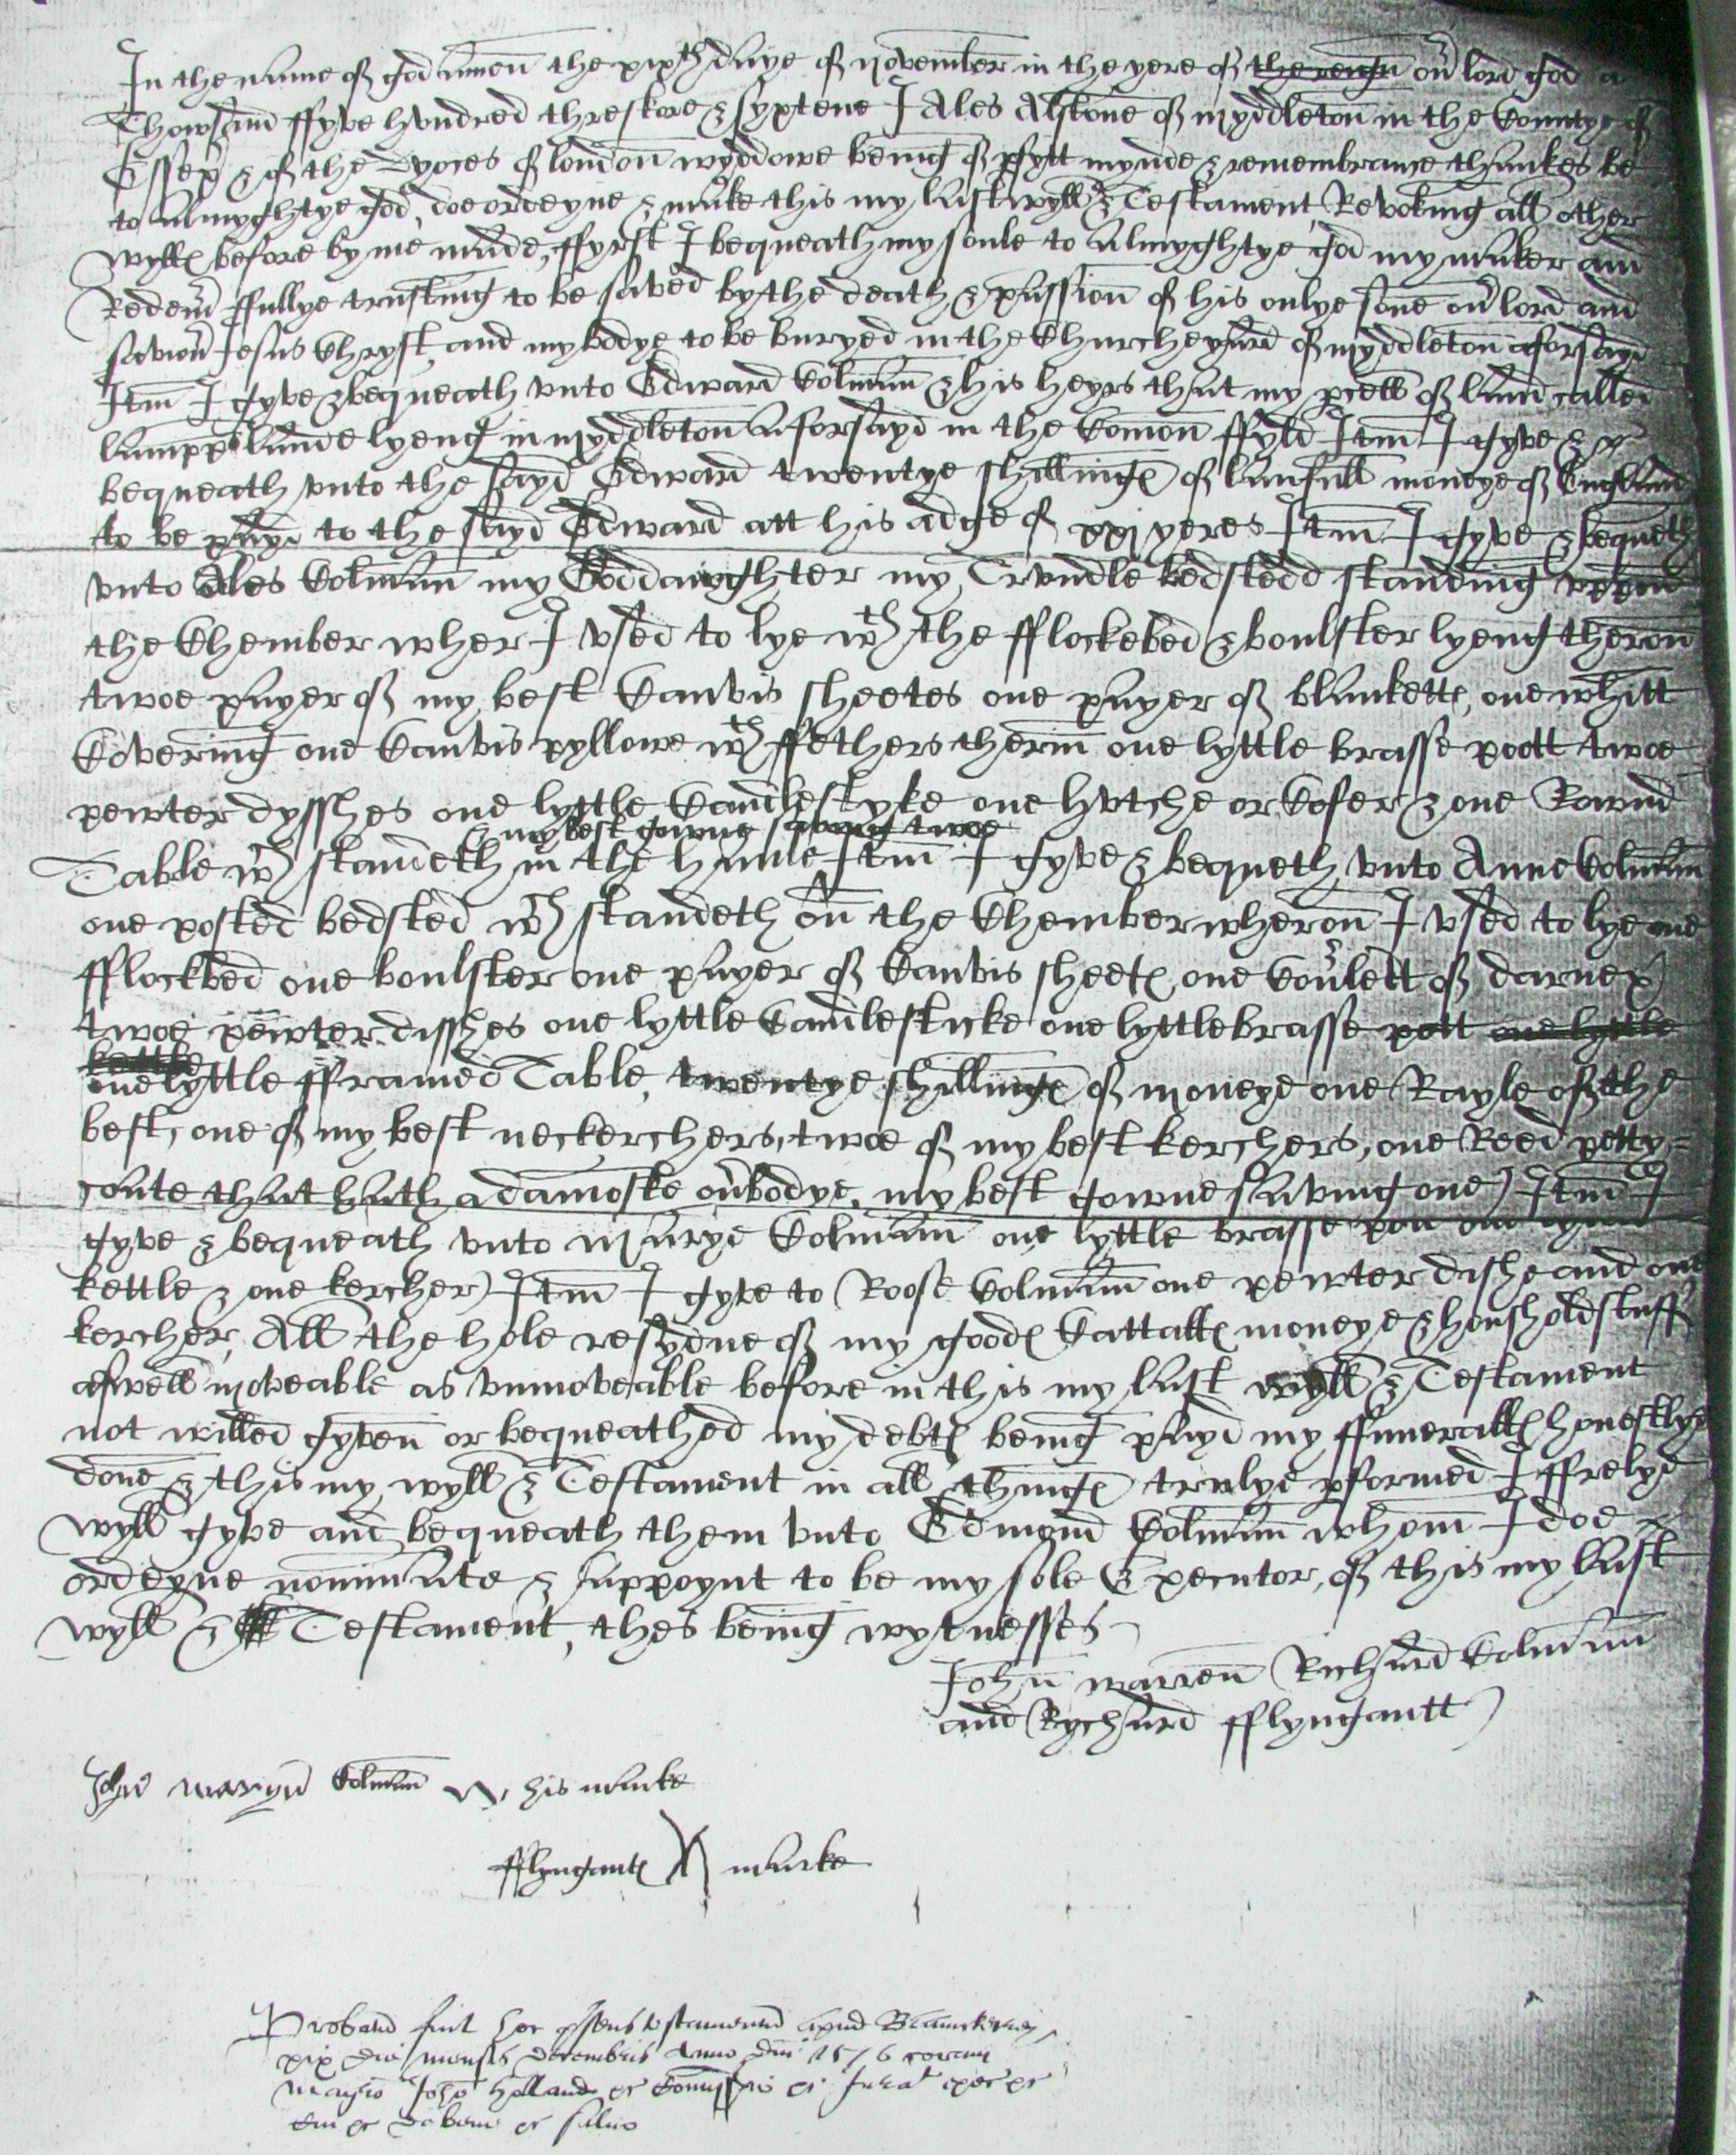 In the name of god amen the xixth daye of november in the yere of the reign our lord god a
Thowsand ffyve hundred threskore & syxtene I Ales Alstone of myddleton in the Countye of
Essex & of the dyoces of london wyddowe being of pfytt mynde & remembrance thankes be
to almyghtye god, doe ordeyne & make this my last wyll & Testament Revoking all other
wylles before by me made, ffyrst I bequeath my soule to almyghtye god my maker and
Redemr ffullye trusting to be saved by the death & passion of his onlye sone our lord and
saviour Jesus Chryst, and my bodye to be buryed in the Churcheyard of myddleton aforsayd
Itm I gyve & bequeath unto Edward Colman & his heyrs that my pcell of land called
lampps lande lyeng in myddleton aforsayd in the Comon ffyld Itm I gyve &
bequeath unto the sayd Edward twentye shillinges of laufull moneye of England
to be payd to the sayd Edward att his adge of xxj yeres Itm I gyve & bequeth
unto Ales Colman my Goddaughter my Trundle bedstedd standing uppon
the Chember wher I used to lye wth the fflockebed & boulster lyeng theron
twoe payer of my best Canvis sheetes one payer of blankettes, one whitt
Covering one Canvis pyllowe wth ffethers therin one lyttle brasse pott twoe
pewter dysshes one lyttle Candlestyke one hutche or Cofer & one Rownd
& my best gowne saving twoe
Table wch standeth in the haule Itm I gyve & bequeth unto Anne Colman
one posted bedsted wch standeth on the Chember wheron I used to lye one
fflockbed one boulster one payer of Canvis sheetes, one Coverlett of darnex
twoe pewter disshes one lyttle Candlesticke one lyttle brasse pott one lyttle
kettle
one lyttle fframed Table, twentye shillinges of moneye one Rayle of the
best, one of my best neckerchers, twoe of my best kerchers, one Reed petty=
coate that hath a damoske overbodye, my best gowne saving one Itm I
gyve & bequeath unto marye Colman one lyttle brasse pan one
kettle & one kercher Itm I gyve to Roose Colman one pewter dishe and one
kercher, All the hole resydue of my goodes Cattalles moneye & housholdstuff
aswell moveable as unmoveable before in this my last wyll & Testament
not willed gyven or bequeathed my debtes being payd my ffuneralles honestlye
done & this my wyll & Testament in all thinges trulye pformed I ffrelye
wyll gyve and bequeath them unto Edmond Colman whom I doe
ordeyne nominate & appoynt to be my sole Executor, of this my last
wyll & Testament, thes being wytnesses
John warren Richard Colman
and Rychard fflyngantt
John waryn Colman his marke
fflyngantes marke
Probatum fuit hoc psens testamentum apud
xix die mensis decembris Anno dni 1576 coram
magro Johe Holland